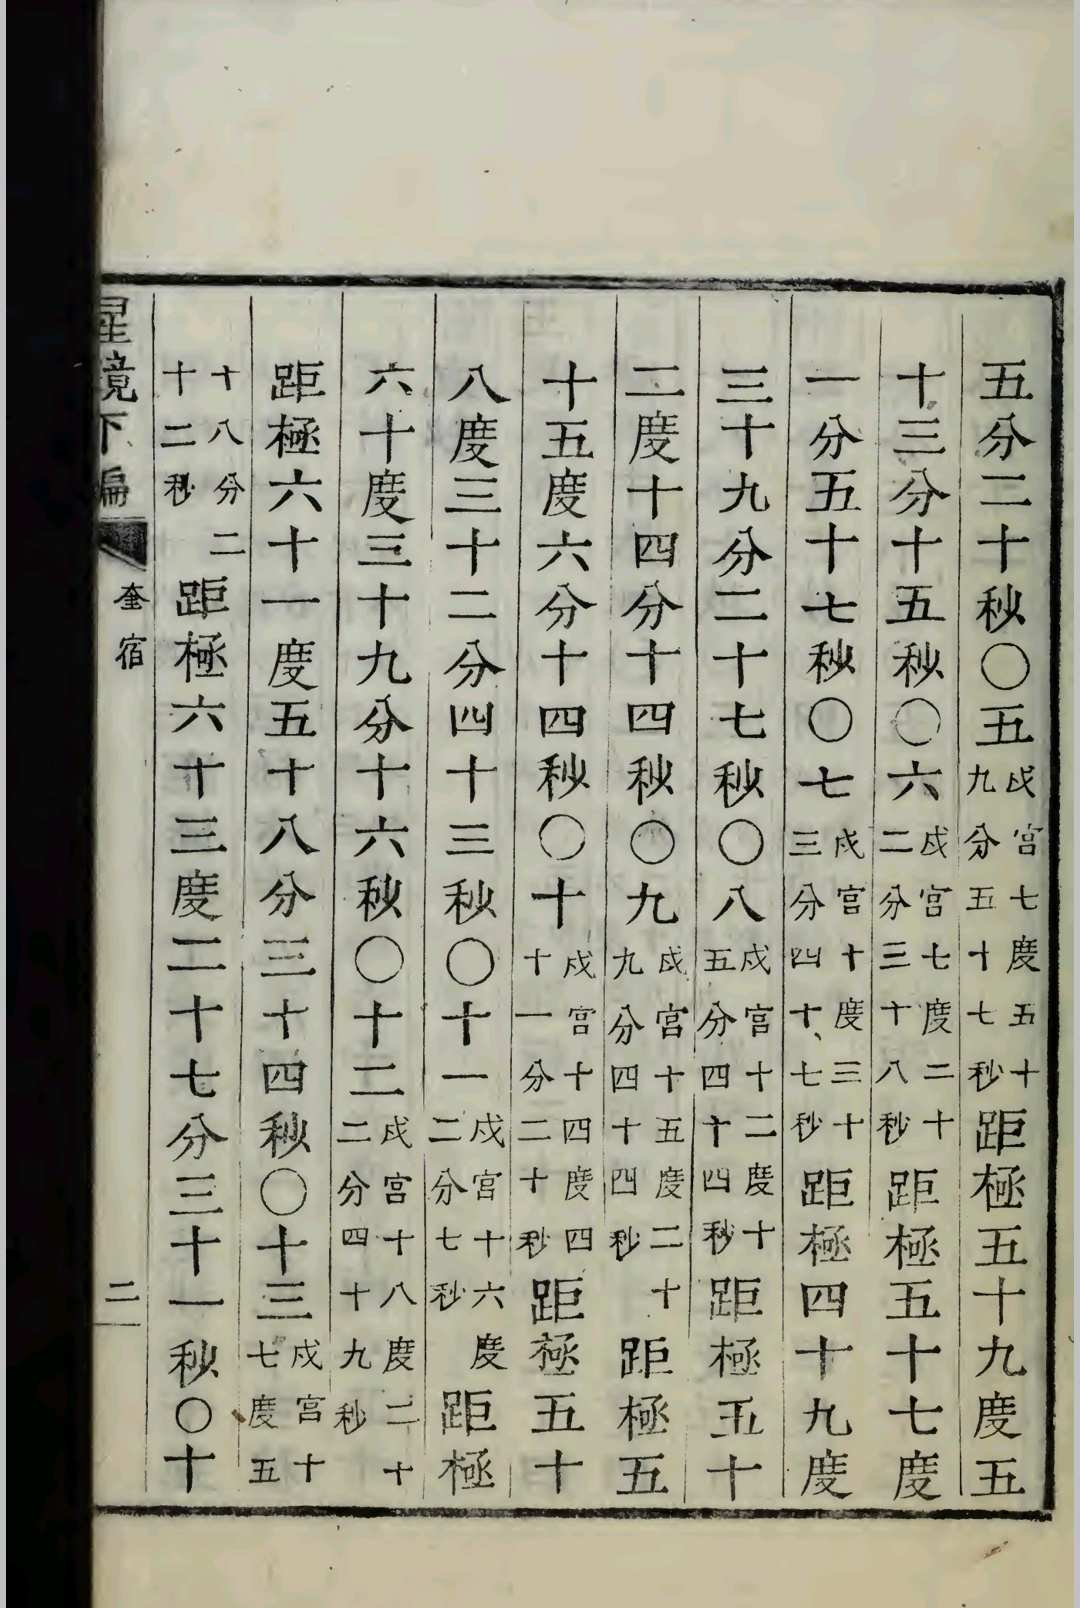 五分二十秒〇五戌宮七度五十九分五十七秒距極五十九度五
十三分十五秒〇六戌宮七度二十二分三十八秒距極五十七度
一分五十七秒〇七戌宮十度三十三分四十七秒距極四十九度
三十九分二十七秒〇八戌宮十二度十五分四十四秒距極五十
二度十四分十四秒〇九戌宮十五度二十九分四十四秒距極五
十五度六分十四秒〇十戌宮十四度四十一分二十秒距極五十
八度三十二分四十三秒〇十一戌宮十六度二分七秒距極
六十度三十九分十六秒〇十二戌宮十八度二十二分四十九秒
距極六十一度五十八分三十四秒〇十三戌宮十七度五
十八分二十二秒距極六十三度二十七分三十一秒〇十
星鏡下編 奎宿 二